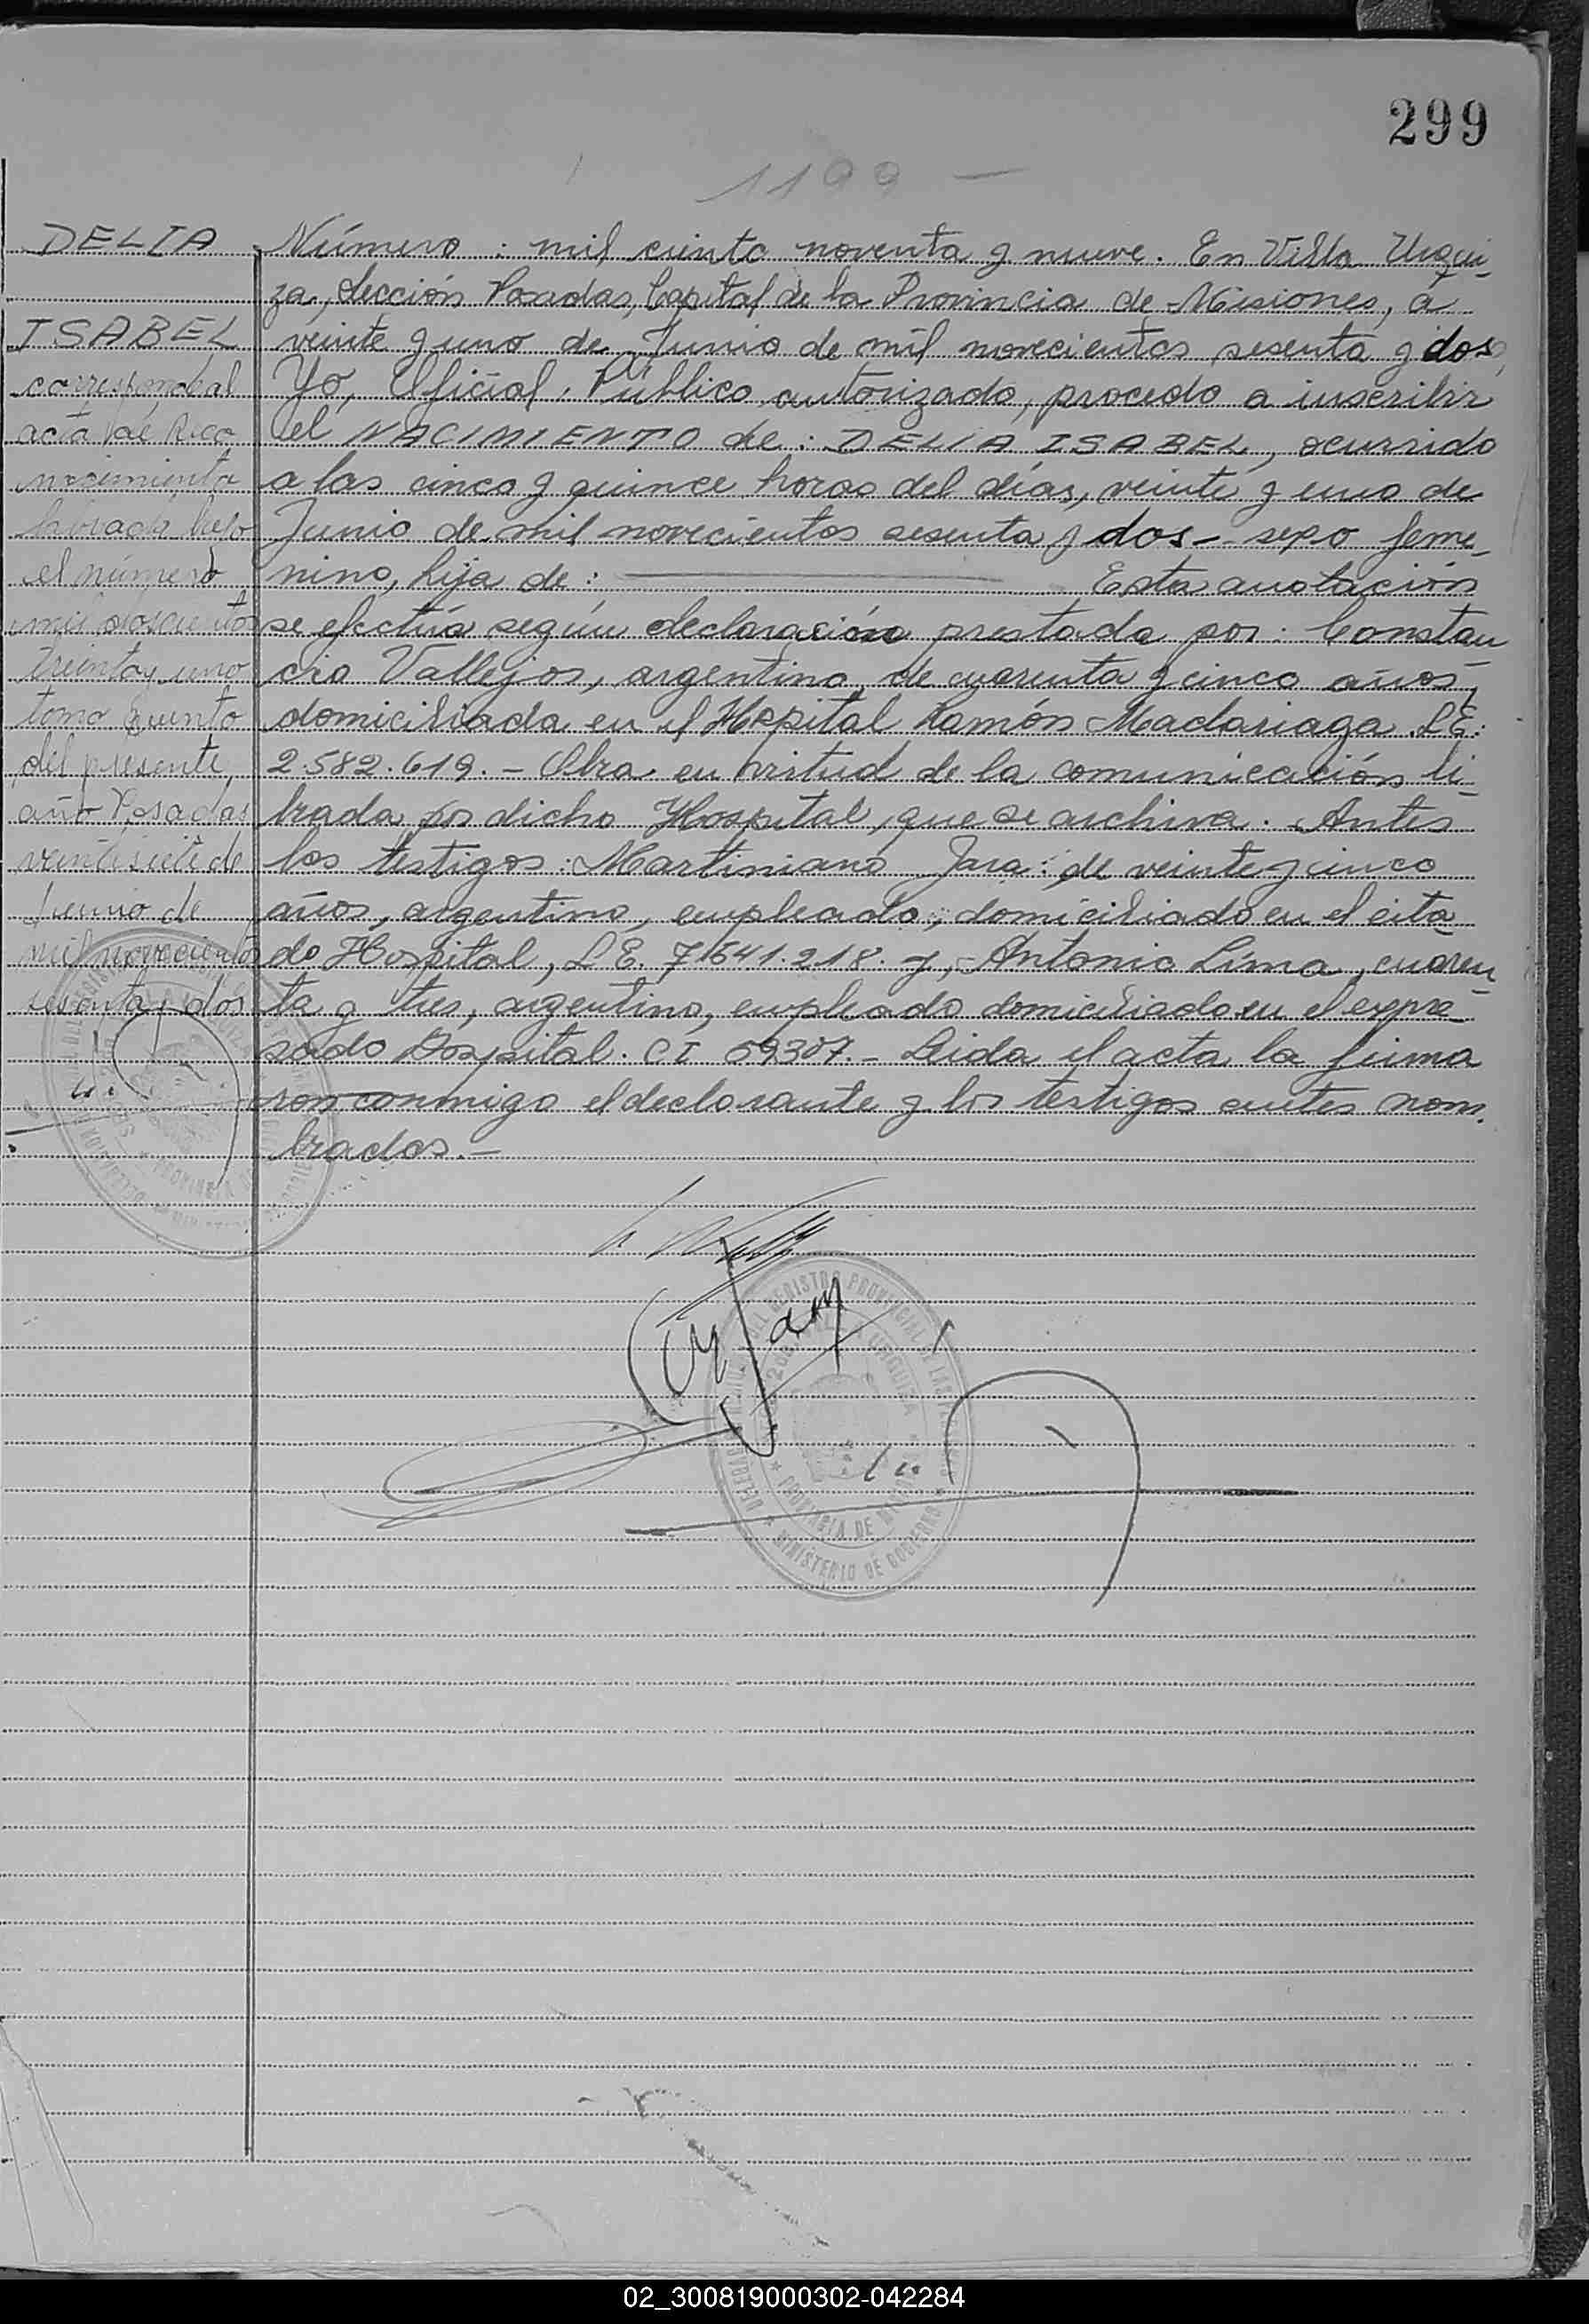 299
1199 —
DELIA
ISABEL
corresponde al
acta de Reco
nocimiento
labrada bajo
el número
mil doscientos
treinta y uno
tomo quinto
del presente
año Posadas
veintisiete de
junio de
mil novecientos
sesenta y dos
Número : mil ciento noventa y nueve. En Villa Urqui-
za, Sección Posadas, Capital de la Provincia de Misiones, a
veinte y uno de Junio de mil novecientos sesenta y dos,
Yo, Oficial Público autorizado, procedo a inscribir
el NACIMIENTO de : DELIA ISABEL, ocurrido
a las cinco y quince horas del días, veinte y uno de
Junio de mil novecientos sesenta y dos - sexo feme-
nino, hija de : ——— Esta anotación
se efectúa según declaración prestada por : Constan
cio Vallejos, argentino, de cuarenta y cinco años,
domiciliada en el Hospital Ramón Madariaga. L.E:
2.582.619. - Obra en virtud de la comunicación li-
brada por dicho Hospital, que se archiva. Antes
los testigos : Martiniano Jara : de veinte y cinco
años, argentino, empleado, domiciliado en el cita
do Hospital, L E. 7.541.218. y, Antonio Lima, cuaren-
ta y tres, argentino, empleado domiciliado en el expre-
sado Hospital. CI 59307. - Leida el acta la firma
ron conmigo el declarante y los testigos antes nom.
brados. -
PROVINCIA DE MISIONES
MINISTERIO DE GOBIERNO
02_300819000302-042284